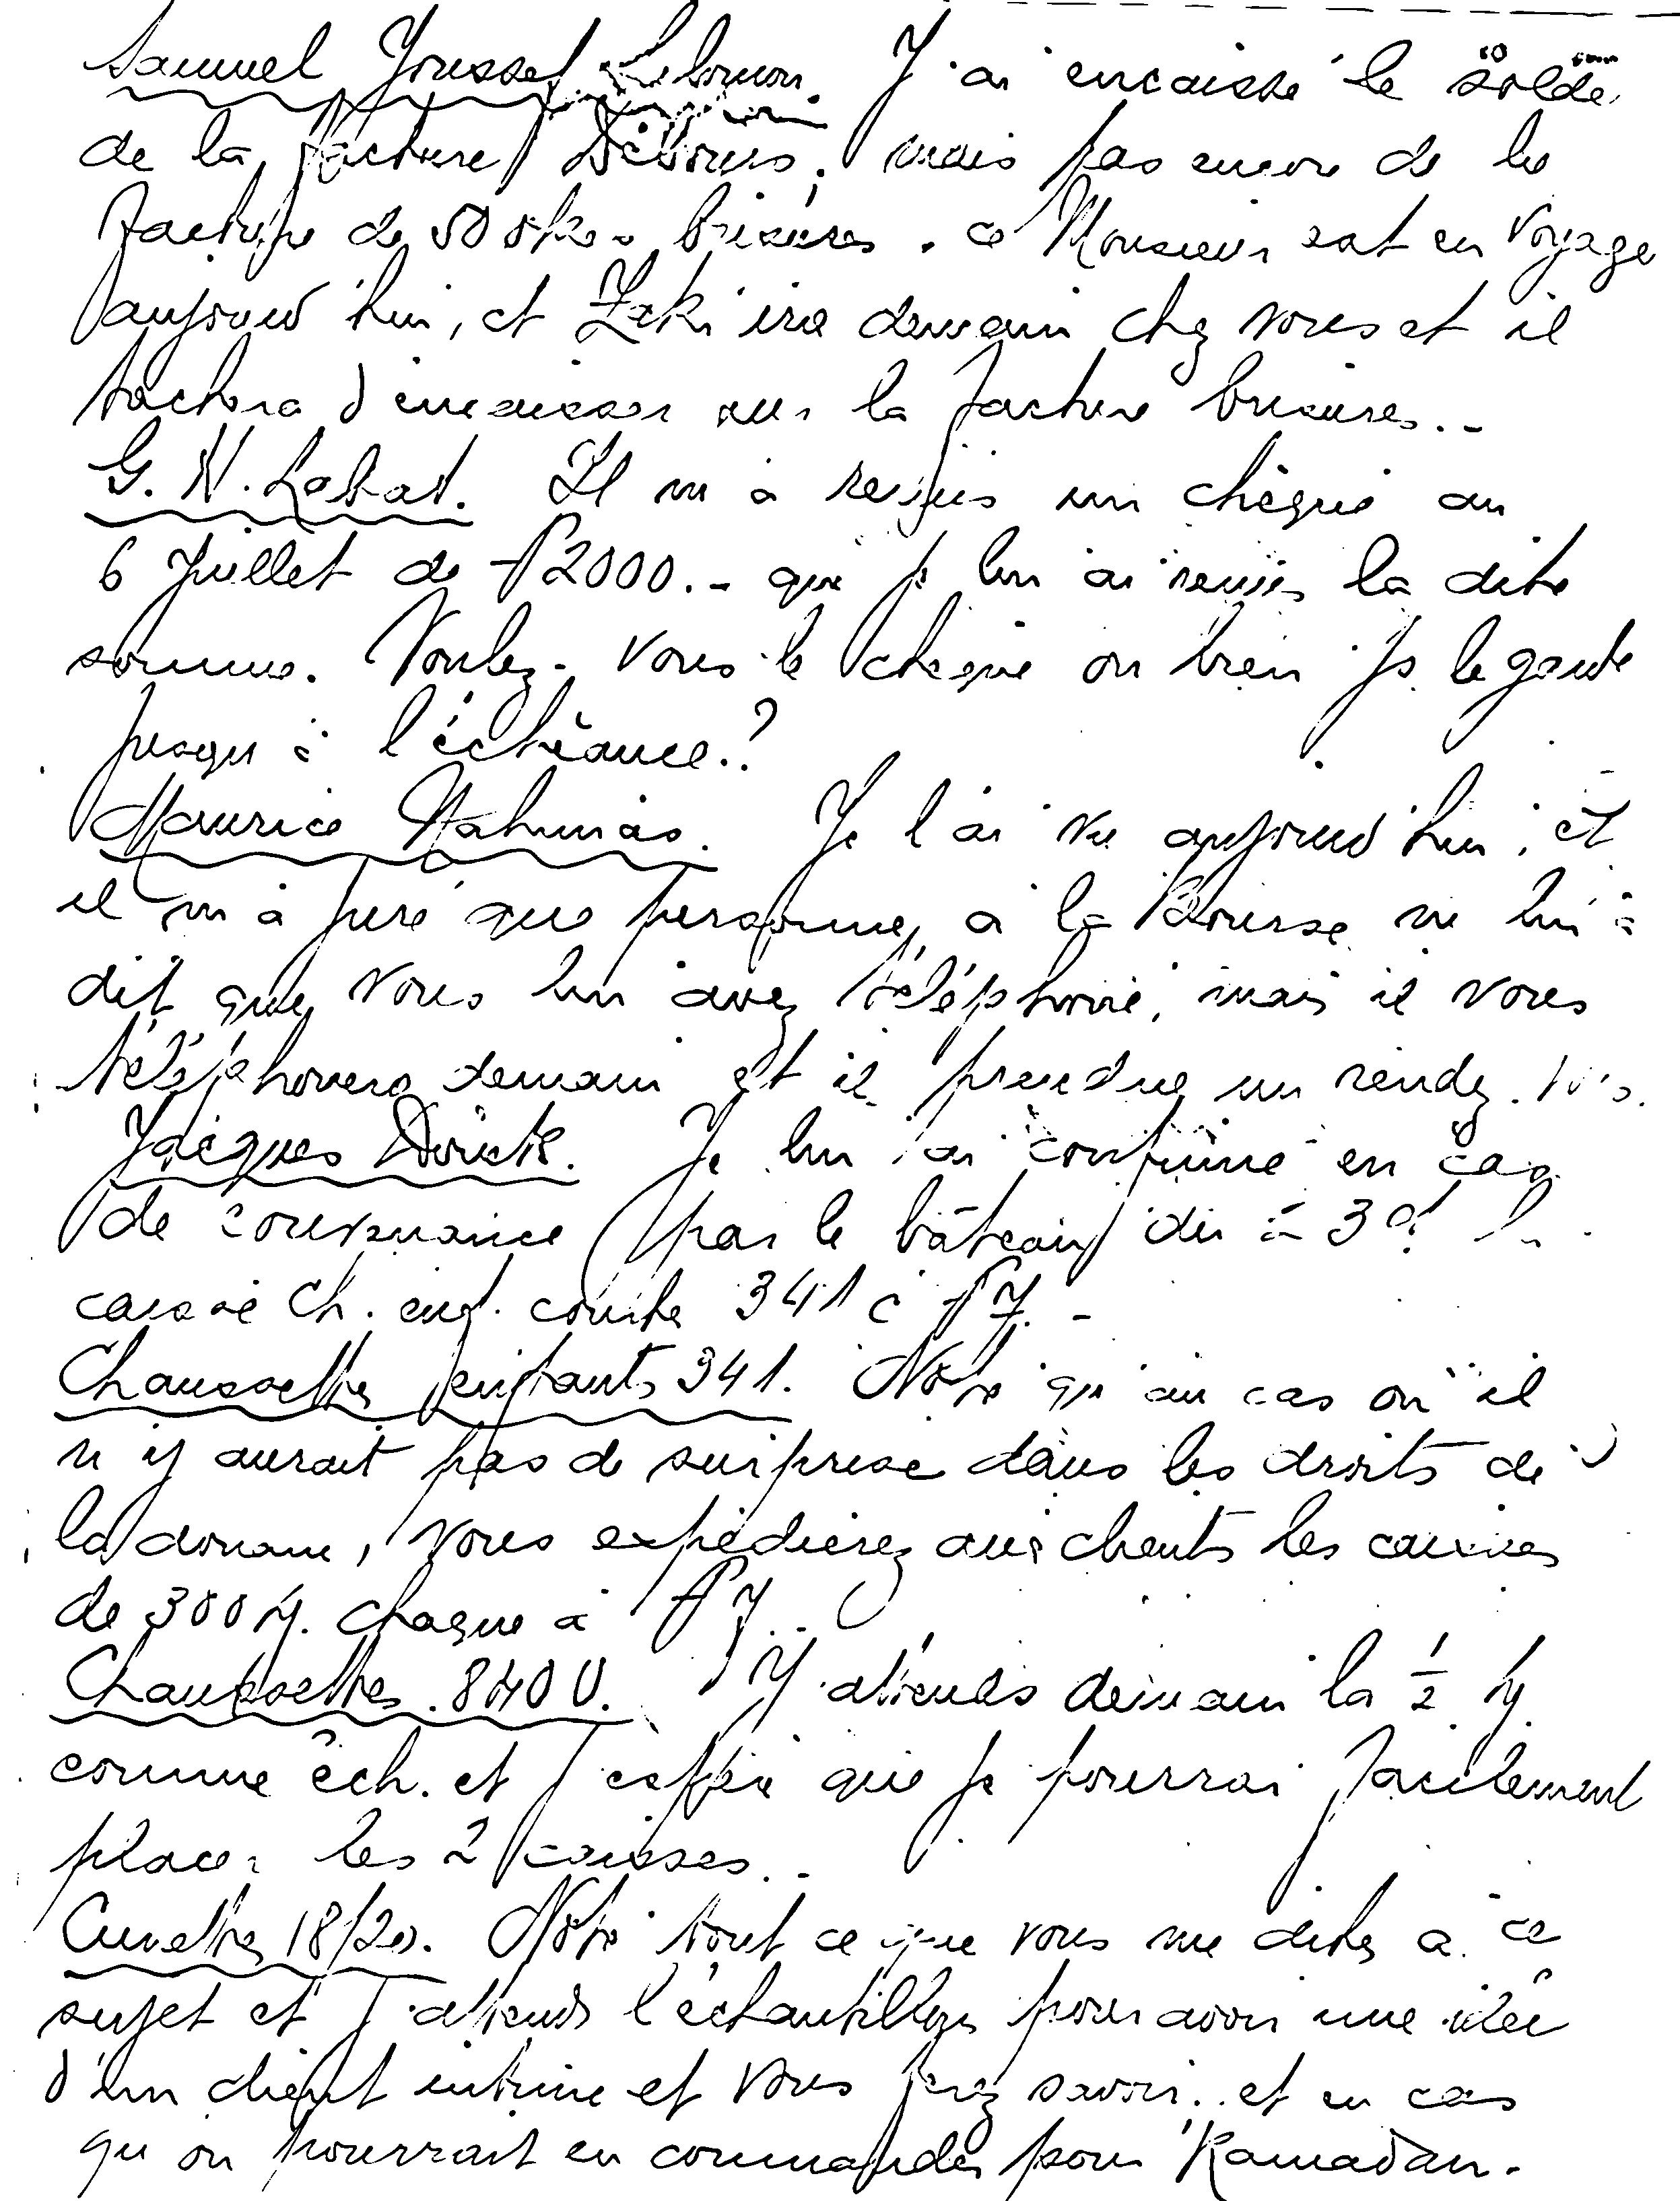 Samuel Youssef J'ai encaissé le solde
de la facture mais pas encore de la
facture de brisures. ce Monsieur est en voyage
aujourd'hui, et Zaki ira demain chez vous et il
tachera d'encaisser sur la facture brisures..
G. N. Il m'a remis un chèque au
6 Juillet de £2000.- que je lui ai remis la dite
somme. Voulez-vous le chèque ou bien je le garde
jusqu'à l'échéance.?
Maurice Nahmias. Je l'ai vu aujourd'hui, et
il m'a juré que personne à la Bourse ne lui a
dit que vous lui avez téléphoné, mais il vous
téléphonera demain et il prendra un rendez-vous.
Jacques Je lui ai confirmé en cas
de convenance par le bâteau du
caisse Ch. enf. courte 341 à £7.-
Chaussettes enfants 341. Noté qu'au cas où il
n'y aurait pas de surprise dans les droits de
la douane, vous expédierez aux clients les caisses
de 300 chaque à £7..
Chaussettes 8400. J'attends demain la ½
comme éch. et j'espère que je pourrai facilement
placer les 2 caisses..
Cuvettes 18/20. Noté tout ce que vous me dites à ce
sujet et j'attends l'échantillon pour avoir une idée
d'un client intime et vous ferez savoir.. et en cas
qu'on pourrait en commander pour Ramadan.